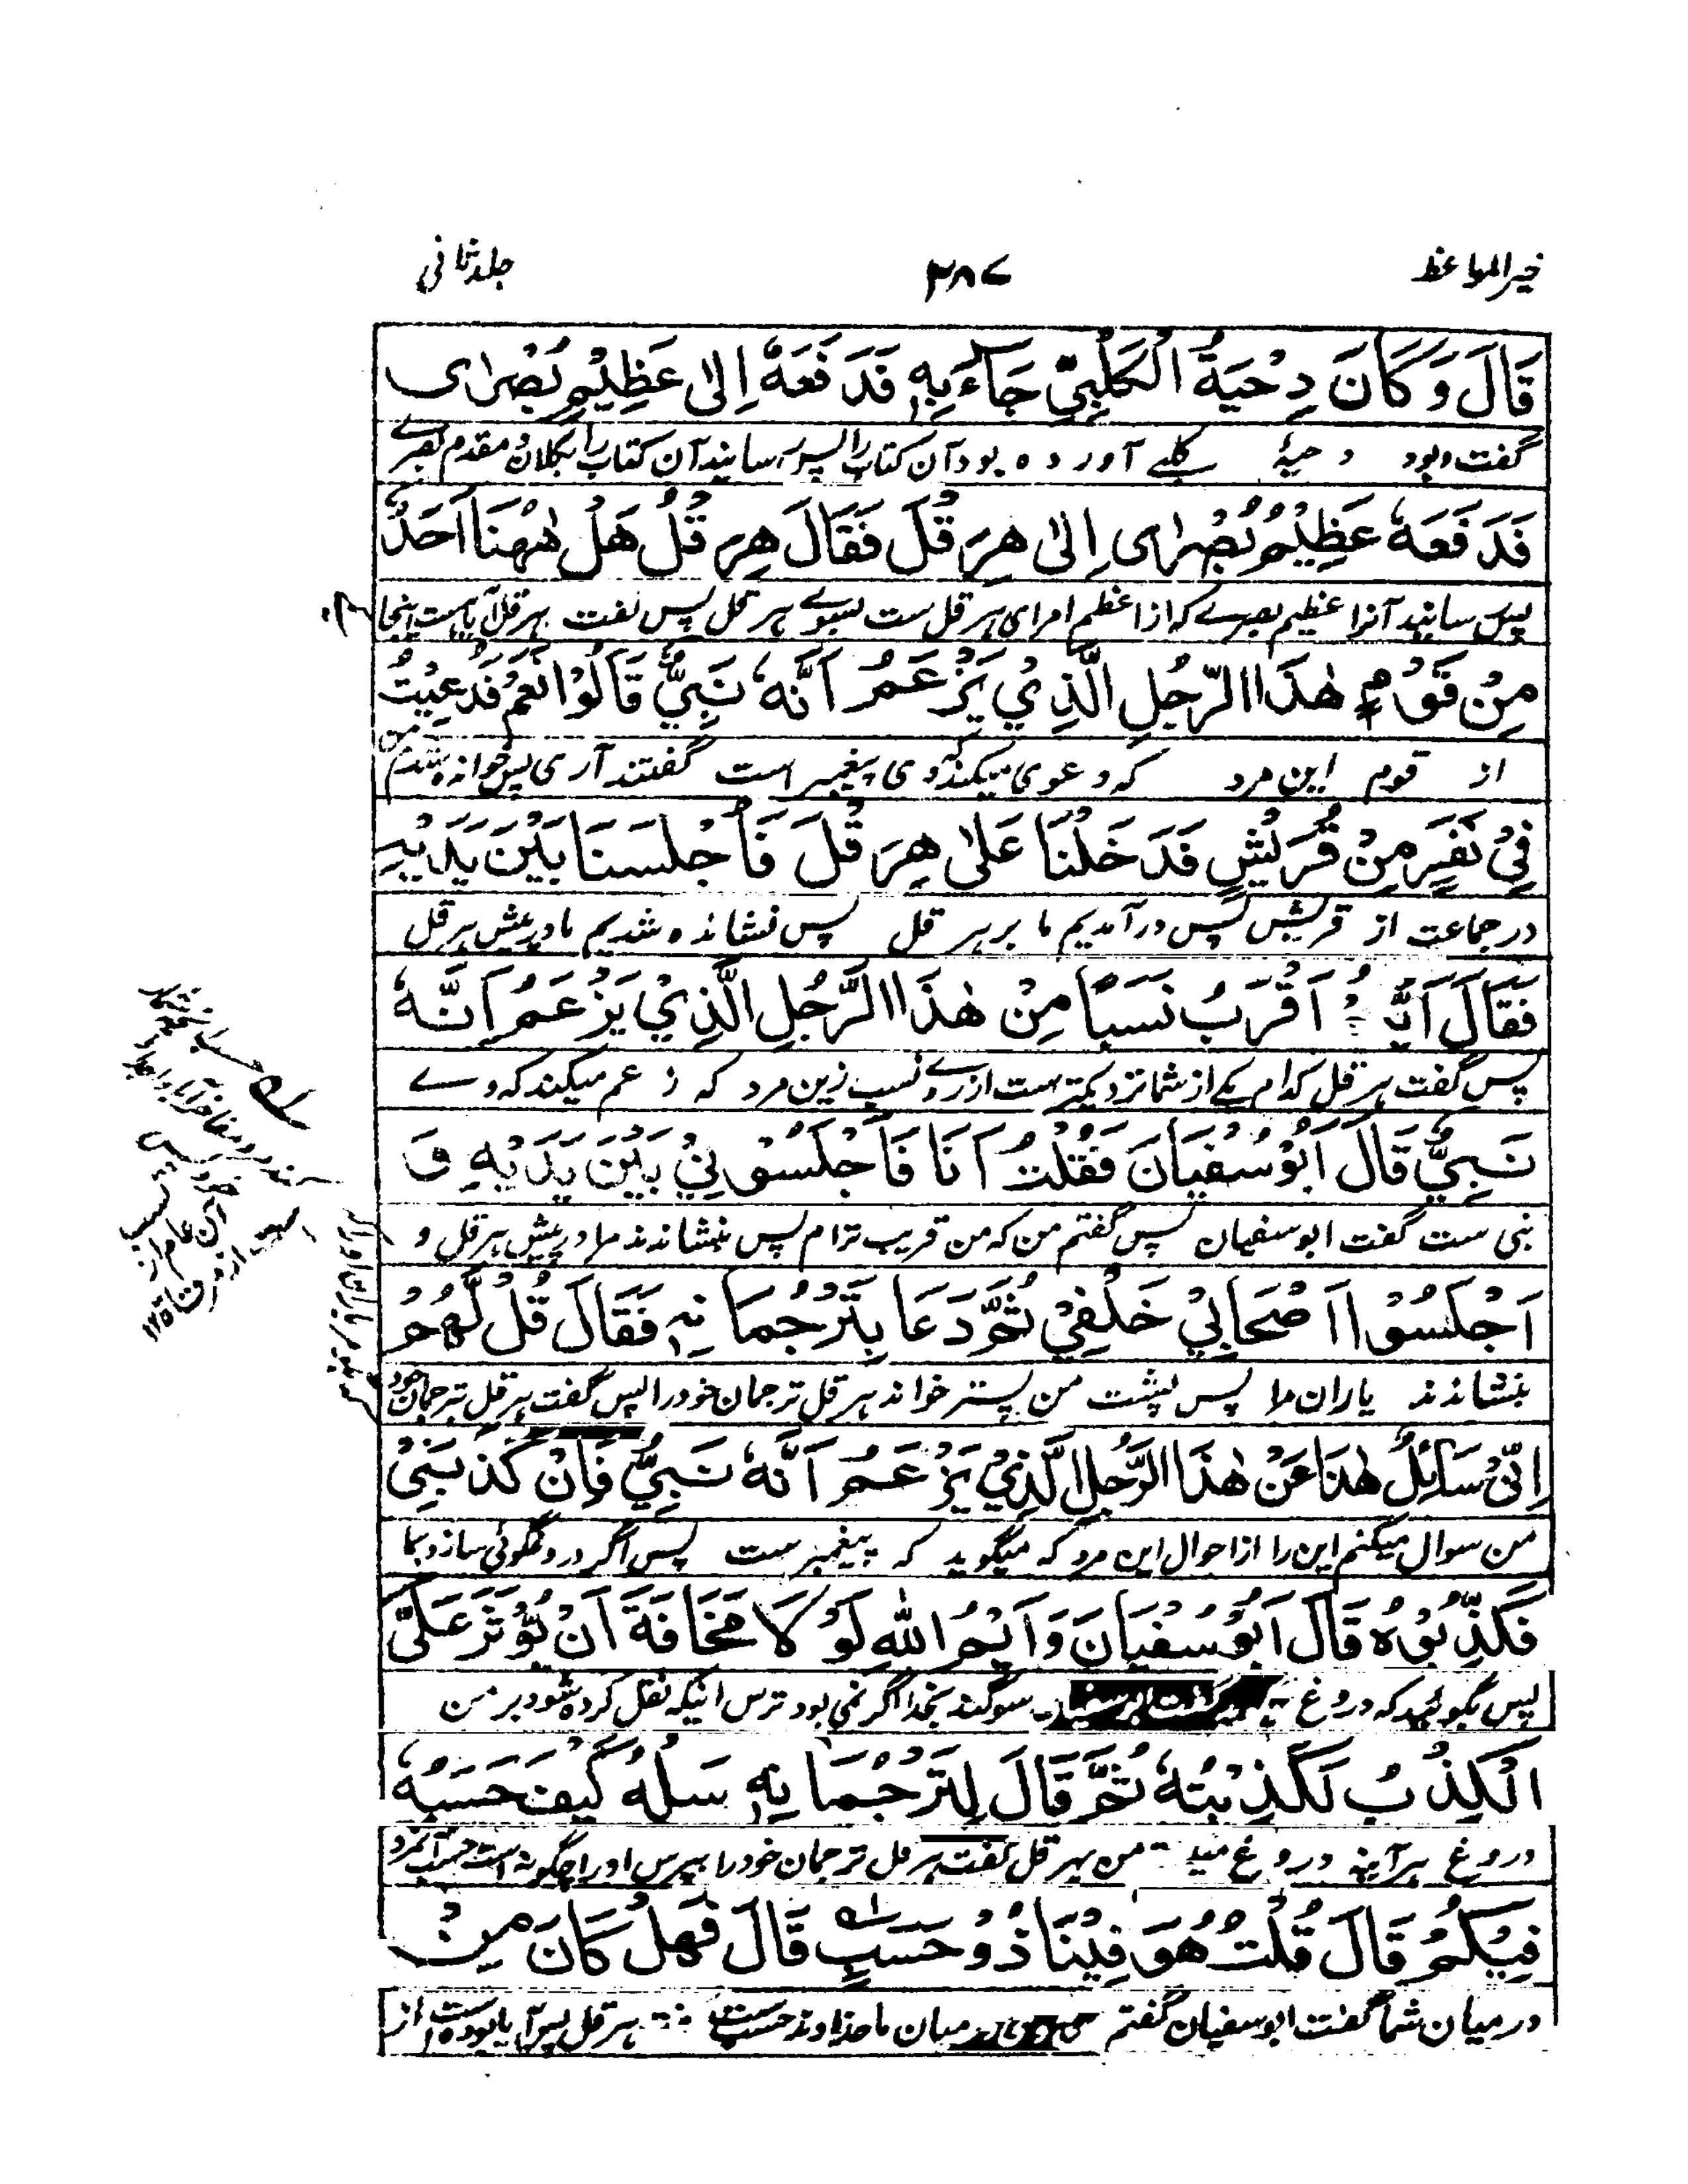 خیر المواعظ ۲۸۷ جلد ثانی
قَالَ وَكَانَ دِحْيَةُ الْكَلْبِيُّ جَاءَ بِهٖ فَدَفَعَهٗ اِلٰى عَظِيْمِ بُصْرٰى
گفت وبود دحیۂ کلبے آوردہ بود آن کتاب را پس رسانید آن کتاب را بکلان و مقدم بصرے
فَدَفَعَهٗ عَظِيْمُ بُصْرٰى اِلٰى هِرَقْلَ فَقَالَ هِرَقْلُ هَلْ هٰهُنَا اَحَدٌ
پس رسانید آنرا عظیم بصرے که از اعظم امرای هرقل ست بسوے هرقل پس گفت هرقل آیا هست اینجا
مِنْ قَوْمِ هٰذَا الرَّجُلِ الَّذِيْ يَزْعَمُ اَنَّهٗ نَبِيٌّ قَالُوْا نَعَمْ فَدُعِيْتُ
از قوم این مرد که دعوی میکند که وی پیغمبر است گفتند آری پس خوانده شدم من
فِيْ نَفَرٍ مِنْ قُرَيْشٍ فَدَخَلْنَا عَلٰى هِرَقْلَ فَاُجْلِسْنَا بَيْنَ يَدَيْهِ
در جماعت از قریش پس در آمدیم ما بر هرقل پس نشانده شدیم ما در پیش هرقل
فَقَالَ اَيُّ اَقْرَبُ نَسَبًا مِنْ هٰذَا الرَّجُلِ الَّذِيْ يَزْعَمُ اَنَّهٗ
پس گفت هرقل کدام یکے از شما نزدیکتر ست از روے نسب زین مرد که زعم میکند که وے
نَبِيٌّ قَالَ اَبُوْ سُفْيَانَ فَقُلْتُ اَنَا فَاَجْلَسُوْنِيْ بَيْنَ يَدَيْهِ وَ
نبی ست گفت ابوسفیان پس گفتم من که من قریب ترام پس بنشاندند مرا در پیش هرقل و
اَجْلَسُوْا اَصْحَابِيْ خَلْفِيْ ثُمَّ دَعَا بِتَرْجُمَانِهٖ فَقَالَ قُلْ لَّهُمْ
بنشاندند یاران مرا پس پشت من پستر خواند هرقل ترجمان خود را پس گفت هرقل ترجمان خود
اِنِّيْ سَائِلٌ هٰذَا عَنْ هٰذَا الرَّجُلِ الَّذِيْ يَزْعَمُ اَنَّهٗ نَبِيٌّ فَاِنْ كَذَبَنِيْ
من سوال میکنم این را از احوال این مرد که میگوید که پیغمبر ست پس اگر دروغگوئی سازد بما
فَكَذِّبُوْهُ قَالَ اَبُوْ سُفْيَانَ وَاَيْمُ اللهِ لَوْ لَا مَخَافَةَ اَنْ يُّؤْثَرَ عَلَيَّ
پس بگوئید که دروغ سوگند بخدا اگر نمی بود ترس اینکه نقل کرده شود بر من
الْكِذْبُ لَكَذَبْتُهٗ ثُمَّ قَالَ لِتَرْجُمَانِهٖ سَلْهُ كَيْفَ حَسَبُهٗ
دروغ هر آینه دروغ من بهرقل گفت هرقل ترجمان خود را بپرس او را چگونه است حسب آنمرد
فِيْكُمْ قَالَ قُلْتُ هُوَ فِيْنَا ذُوْ حَسَبٍ قَالَ فَهَلْ كَانَ مِنْ
در میان شما گفت ابوسفیان گفتم میان ما خداوند حسب ست هرقل پس آیا بوده ست از